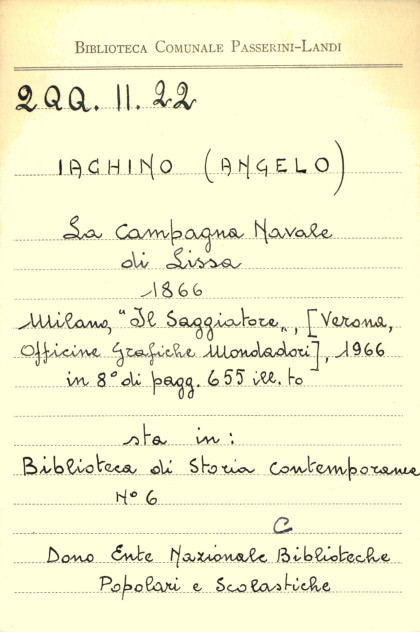 BIBLIOTECA COMUNALE PASSERINI-LANDI
2QQ. 11. 22
IACHINO (ANGELO)
La Campagna Navale
di Lissa
1866
Milano, "Il Saggiatore„, [Verona,
Officine Grafiche Mondadori], 1966
in 8° di pagg. 655 ill. to
sta in:
Biblioteca di Storia Contemporanea
N° 6
C
Dono Ente Nazionale Biblioteche
Popolari e Scolastiche